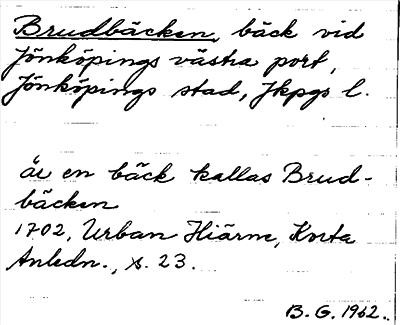 Brudbäcken, bäck vid
Jönköpings västra port,
Jönköpings stad, Jkpgs l.
är en bäck kallas Brud-
bäcken
1702, Urban Hiärne, Korta
Anledn., s. 23.
B. G. 1962.